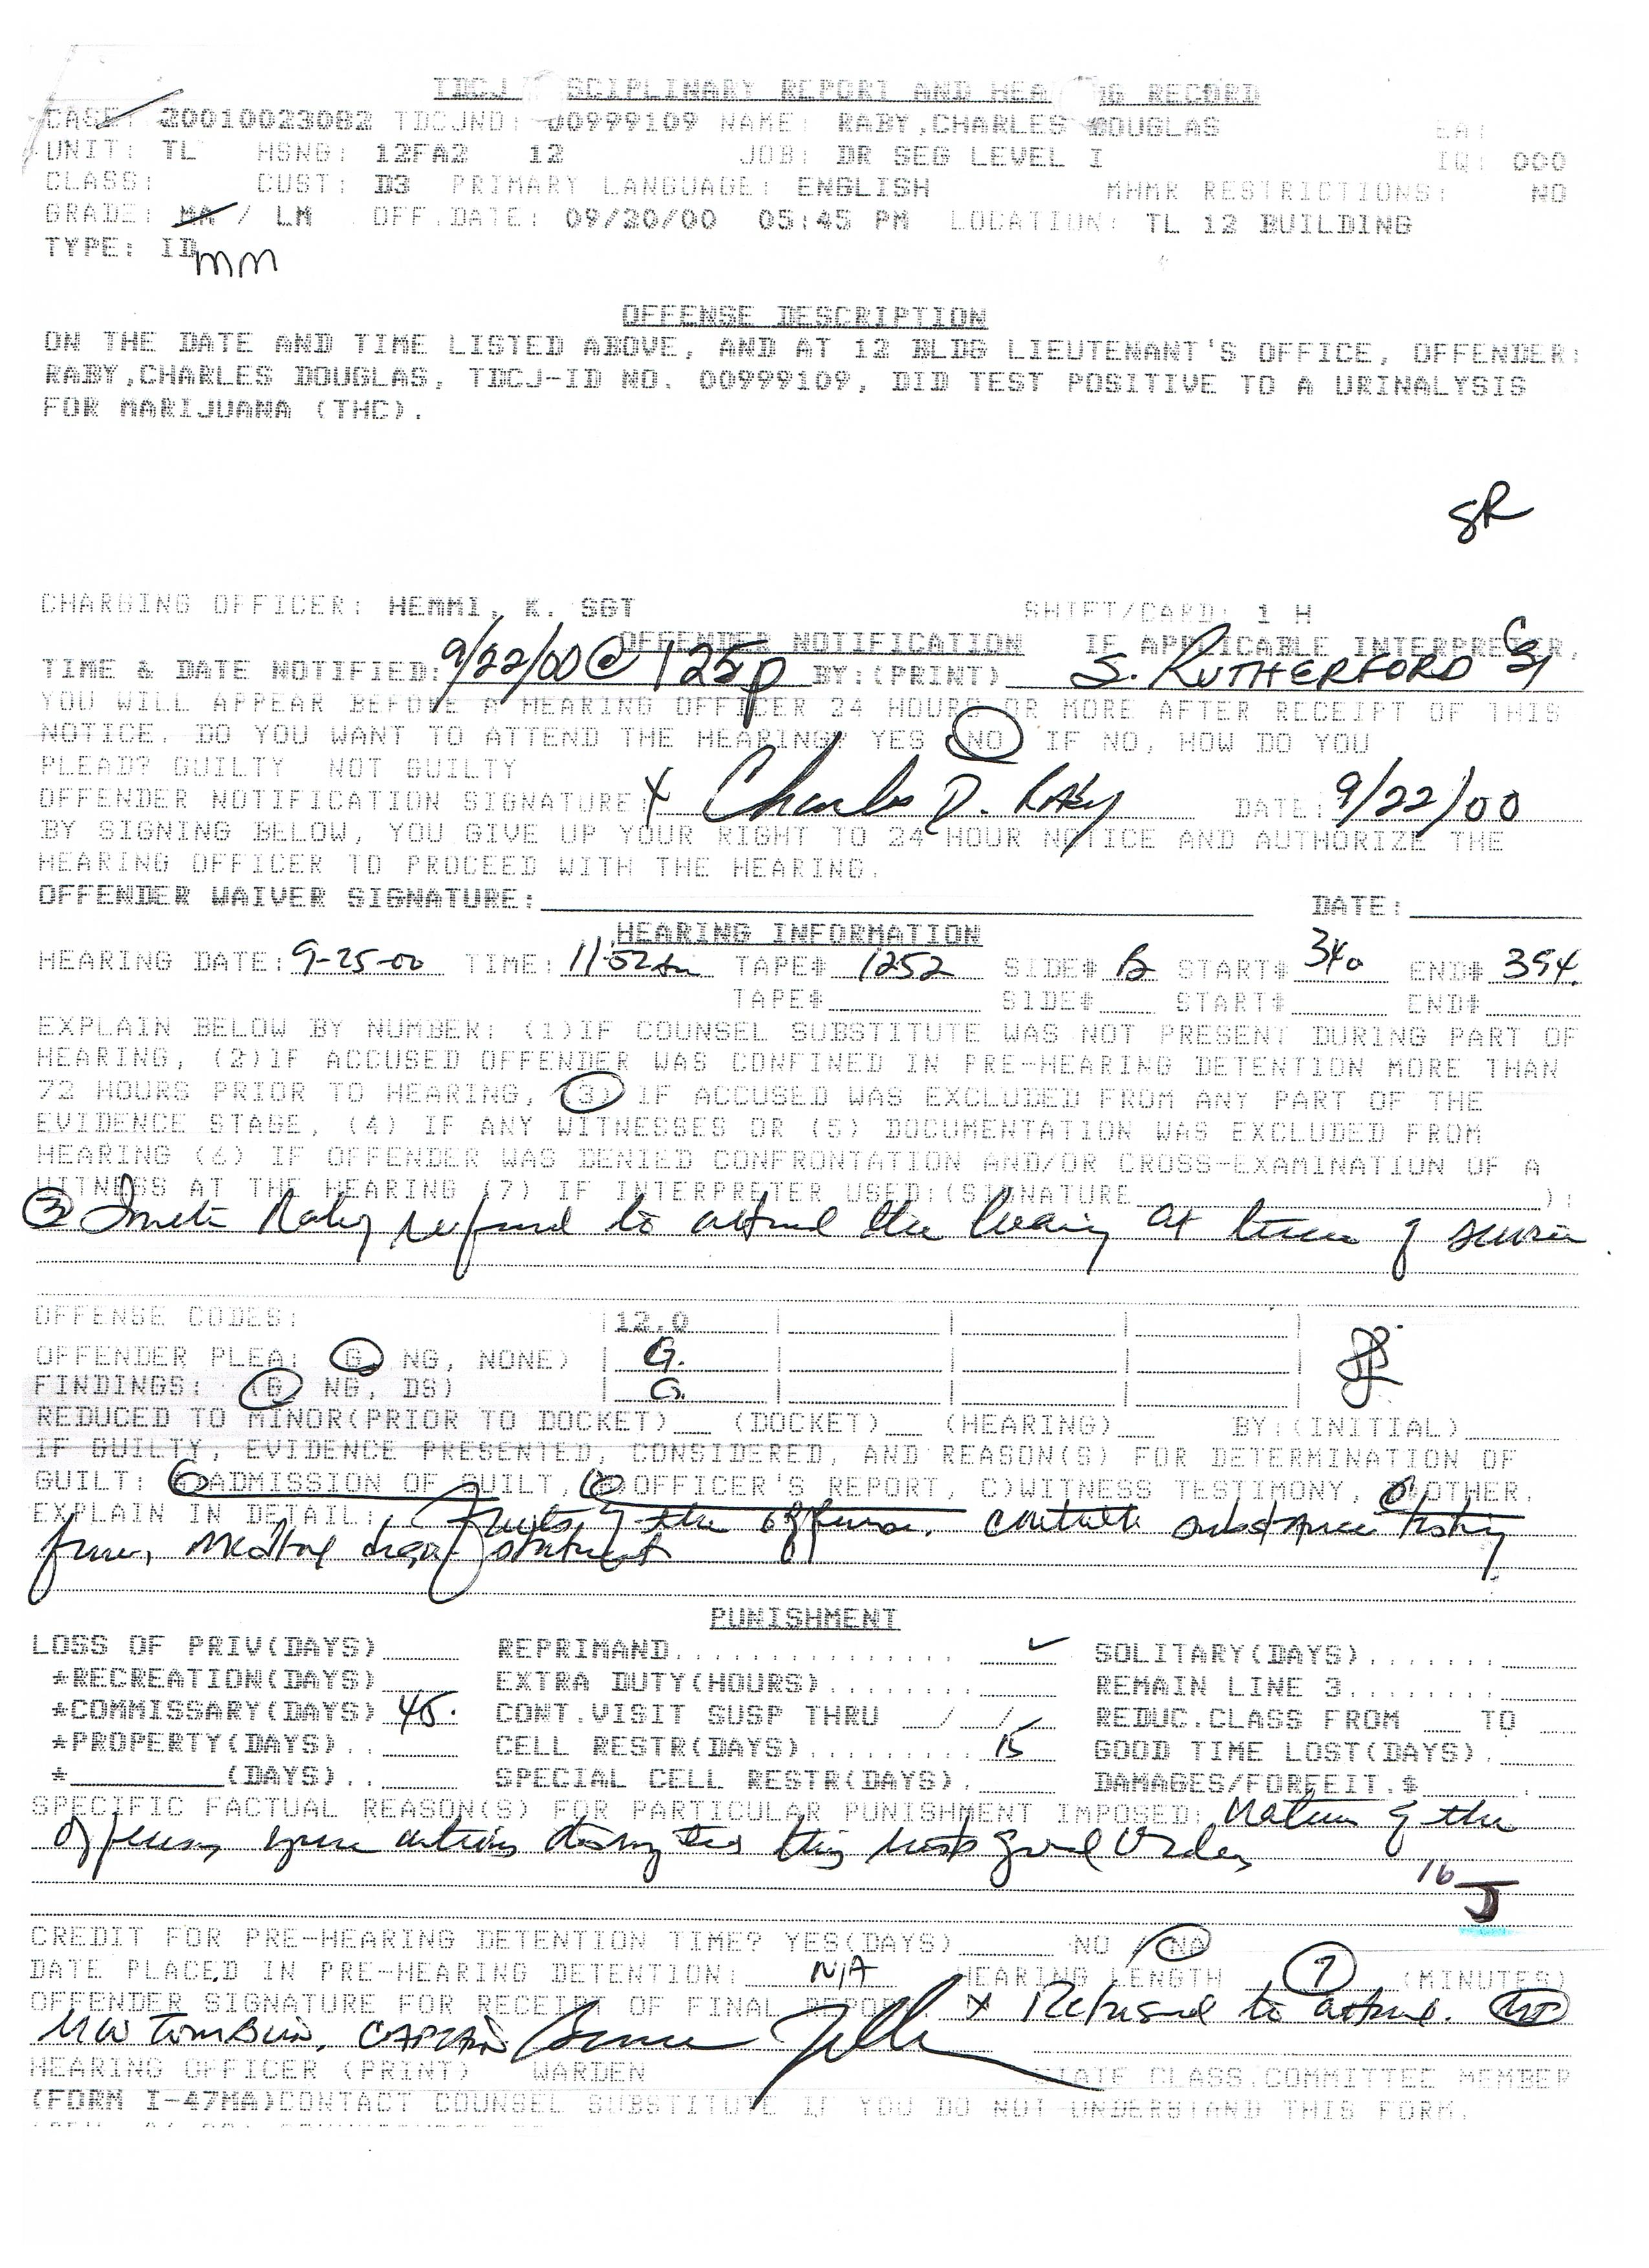 TDCJ SCIPLINARY REPORT AND HEA NG RECORD
CASE: 20010023082 TDCJNO: 00999109 NAME: RABY,CHARLES DOUGLAS EA:
UNIT: TL HSNG: 12FA2 12 JOB: DR SEG LEVEL I IQ: 000
CLASS: CUST: D3 PRIMARY LANGUAGE: ENGLISH MHMR RESTRICTIONS: NO
GRADE: MA / LM OFF.DATE: 09/20/00 05:45 PM LOCATION: TL 12 BUILDING
TYPE: ID
mm
OFFENSE DESCRIPTION
ON THE DATE AND TIME LISTED ABOVE, AND AT 12 BLDG LIEUTENANT'S OFFICE, OFFENDER:
RABY,CHARLES DOUGLAS, TDCJ-ID NO. 00999109, DID TEST POSITIVE TO A URINALYSIS
FOR MARIJUANA (THC).
SR
CHARGING OFFICER: HEMMI, K. SGT SHIFT/CARD: 1 H
OFFENDER NOTIFICATION IF APPLICABLE INTERPRETER,
TIME & DATE NOTIFIED: 9/22/00 @ 125p BY:(PRINT) S. RUTHERFORD
YOU WILL APPEAR BEFORE A HEARING OFFICER 24 HOURS OR MORE AFTER RECEIPT OF THIS
NOTICE. DO YOU WANT TO ATTEND THE HEARING? YES NO IF NO, HOW DO YOU
PLEAD? GUILTY NOT GUILTY
OFFENDER NOTIFICATION SIGNATURE: X Charles D. Raby DATE: 9/22/00
BY SIGNING BELOW, YOU GIVE UP YOUR RIGHT TO 24 HOUR NOTICE AND AUTHORIZE THE
HEARING OFFICER TO PROCEED WITH THE HEARING.
OFFENDER WAIVER SIGNATURE: DATE:
HEARING INFORMATION
HEARING DATE: 9-25-00 TIME: 11:52am TAPE# 1252 SIDE# B START# 340 END# 354.
TAPE# SIDE# START# END#
EXPLAIN BELOW BY NUMBER: (1)IF COUNSEL SUBSTITUTE WAS NOT PRESENT DURING PART OF
HEARING, (2)IF ACCUSED OFFENDER WAS CONFINED IN PRE-HEARING DETENTION MORE THAN
72 HOURS PRIOR TO HEARING, (3) IF ACCUSED WAS EXCLUDED FROM ANY PART OF THE
EVIDENCE STAGE, (4) IF ANY WITNESSES OR (5) DOCUMENTATION WAS EXCLUDED FROM
HEARING (6) IF OFFENDER WAS DENIED CONFRONTATION AND/OR CROSS-EXAMINATION OF A
WITNESS AT THE HEARING (7) IF INTERPRETER USED:(SIGNATURE ):
③ Inmate Raby refused to attend the hearing at time of service.
OFFENSE CODES: 12.0
OFFENDER PLEA: (G, NG, NONE) G.
FINDINGS: (G, NG, DS) G.
REDUCED TO MINOR(PRIOR TO DOCKET) (DOCKET) (HEARING) BY:(INITIAL)
IF GUILTY, EVIDENCE PRESENTED, CONSIDERED, AND REASON(S) FOR DETERMINATION OF
GUILT: A)ADMISSION OF GUILT, B)OFFICER'S REPORT, C)WITNESS TESTIMONY, D)OTHER.
EXPLAIN IN DETAIL: of the offense. substance testing
form, statement
PUNISHMENT
LOSS OF PRIV(DAYS) REPRIMAND............... ✓ SOLITARY(DAYS).......
*RECREATION(DAYS) EXTRA DUTY(HOURS)......... REMAIN LINE 3........
*COMMISSARY(DAYS) 45. CONT.VISIT SUSP THRU / / REDUC.CLASS FROM TO
*PROPERTY(DAYS).. CELL RESTR(DAYS).......... 15 GOOD TIME LOST(DAYS).
* (DAYS).. SPECIAL CELL RESTR(DAYS). DAMAGES/FORFEIT.$ .
SPECIFIC FACTUAL REASON(S) FOR PARTICULAR PUNISHMENT IMPOSED: Nature of the
offense, your actions good order
16 J
CREDIT FOR PRE-HEARING DETENTION TIME? YES(DAYS) NO / NA
DATE PLACED IN PRE-HEARING DETENTION: N/A HEARING LENGTH 9 (MINUTES)
OFFENDER SIGNATURE FOR RECEIPT OF FINAL REPORT X Refused to attend. MT
MW Tomblin, CAPTAIN
HEARING OFFICER (PRINT) WARDEN STATE CLASS.COMMITTEE MEMBER
(FORM I-47MA)CONTACT COUNSEL SUBSTITUTE IF YOU DO NOT UNDERSTAND THIS FORM.